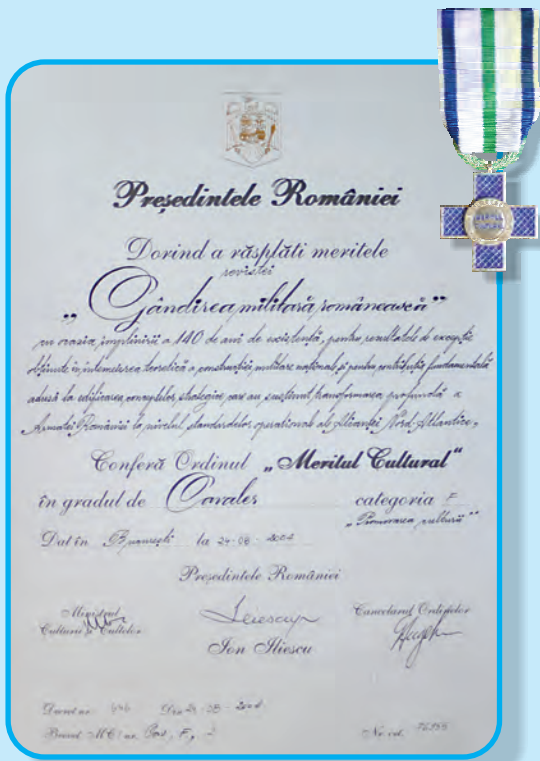 Președintele României
Dorind a răsplăti meritele
revistei
„Gândirea militară românească”
cu ocazia împlinirii a 140 de ani de existență, pentru rezultatele de excepție
obținute în întemeierea teoretică a construcției militare naționale și pentru contribuția fundamentală
adusă la edificarea conceptelor strategice care au susținut transformarea profundă a
Armatei României la nivelul standardelor operaționale ale Alianței Nord-Atlantice,
Conferă Ordinul „Meritul Cultural”
în gradul de Cavaler categoria F
„Promovarea culturii”
Dat în București la 24-08-2004
Președintele României
Ministrul Cancelarul Ordinelor
Culturii și Cultelor
Ion Iliescu
Decret nr. 646 Din 24-08-2004
Brevet MC/nr.
Nr. crt.